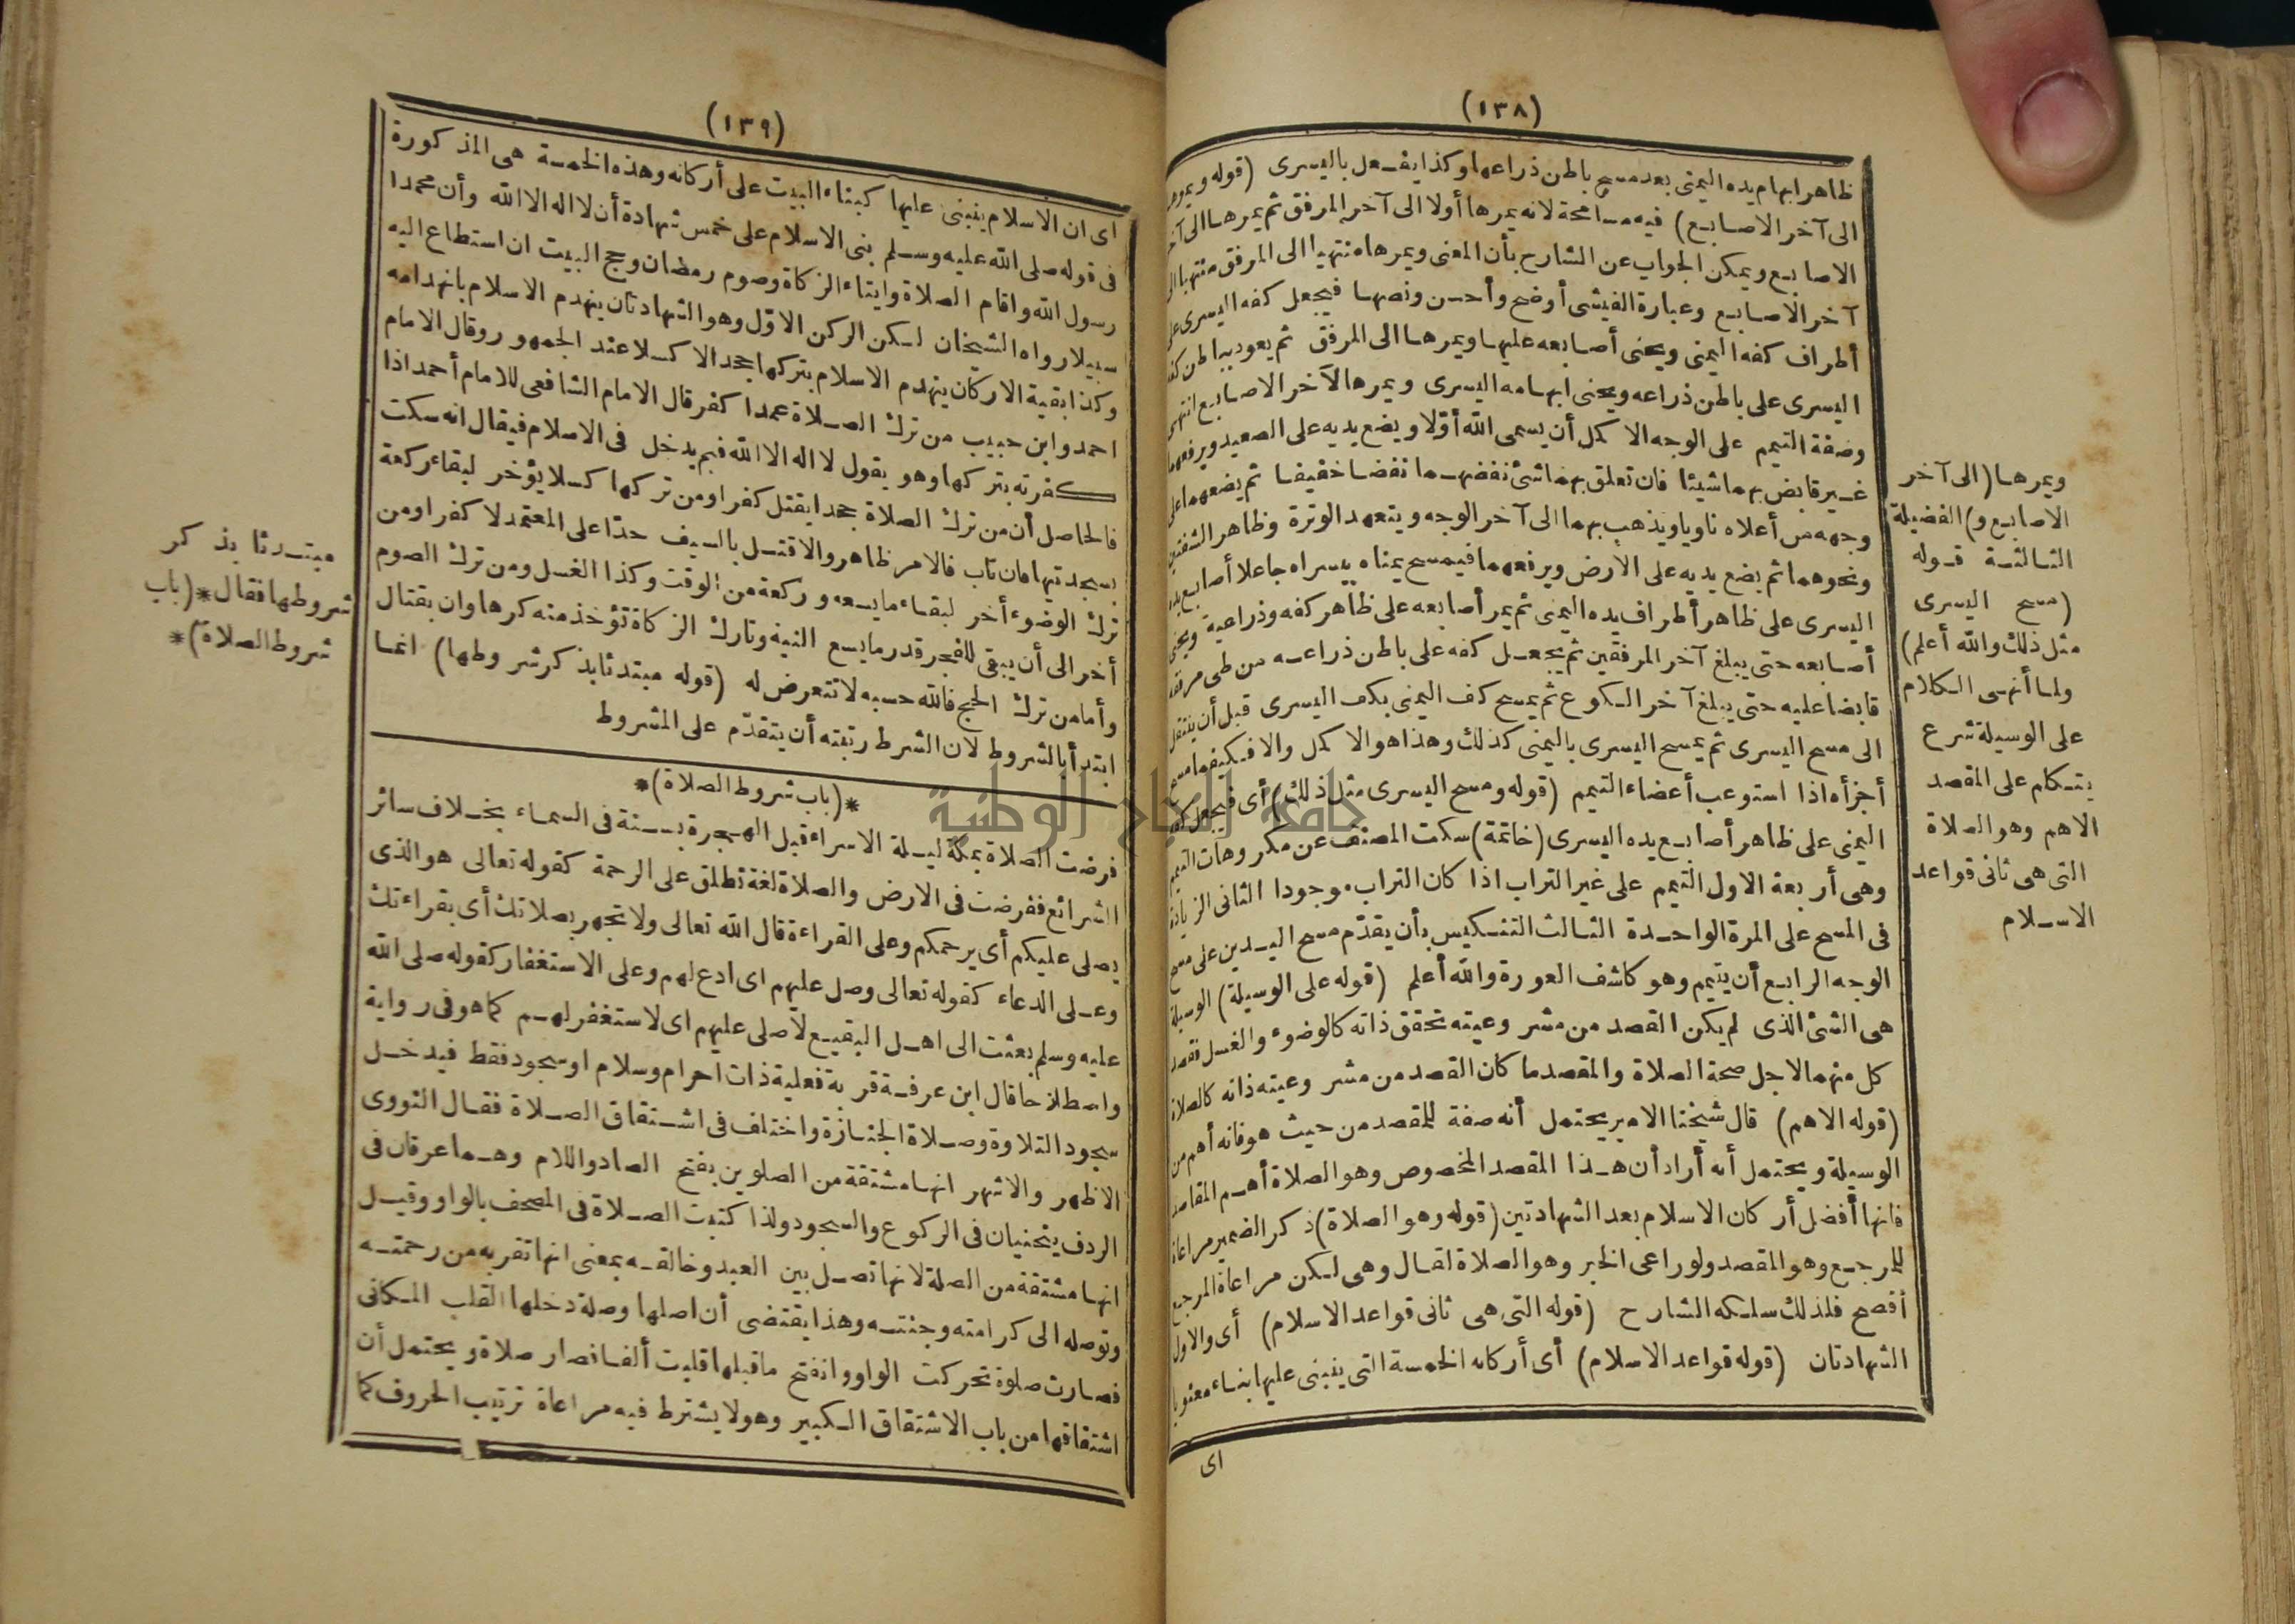 (١٣٨)
ظاهر ابهام يده اليمنى بعد مسح باطن ذراعها وكذا يفعل باليسرى (قوله ويمرها
الى آخر الاصابع) فيه مسامحة لانه يمرها أولا الى آخر المرفق ثم يمرها الى آخر
الاصابع ويمكن الجواب عن الشارح بأن المعنى ويمرها منتهيا الى المرفق منتهيا الى
آخر الاصابع وعبارة الفيشى أوضح وأحسن ونصها فيجعل كفه اليسرى على
أطراف كفه اليمنى ويحنى أصابعه عليها ويمرها الى المرفق ثم يعود بباطن كفه
اليسرى على باطن ذراعه ويحنى ابهامه اليسرى ويمرها لآخر الاصابع انتهى
وصفة التيمم على الوجه الاكمل أن يسمى الله أوّلا ويضع يديه على الصعيد ويرفعهما
غير قابض بهما شيئا فان تعلق بهما شئ نفضهما نفضا خفيفا ثم يضعهما على
وجهه من أعلاه ناويا ويذهب بهما الى آخر الوجه ويتعهد الوترة وظاهر الشفتين
ونحوهما ثم يضع يديه على الارض ويرفعهما فيمسح يمناه بيسراه جاعلا أصابع يده
اليسرى على ظاهر أطراف يده اليمنى ثم يمر أصابعه على ظاهر كفه وذراعيه ويحنى
أصابعه حتى يبلغ آخر المرفقين ثم يجعل كفه على باطن ذراعه من طى مرفقه
قابضا عليه حتى يبلغ آخر الكوع ثم يمسح كف اليمنى بكف اليسرى قبل أن ينتقل
الى مسح اليسرى ثم يمسح اليسرى باليمنى كذلك وهذا هو الاكمل والا فكيفما مسح
أجزأه اذا استوعب أعضاء التيمم (قوله ومسح اليسرى مثل ذلك) أى فيجعل كفه
اليمنى على ظاهر أصابع يده اليسرى (خاتمة) سكت المصنف عن مكروهات التيمم
وهى أربعة الاول التيمم على غير التراب اذا كان التراب موجودا الثانى الزيادة
فى المسح على المرة الواحدة الثالث التنكيس بأن يقدّم مسح اليدين على مسح
الوجه الرابع أن يتيمم وهو كاشف العورة والله أعلم (قوله على الوسيلة) الوسيلة
هى الشئ الذى لم يكن القصد من مشروعيته تحقق ذاته كالوضوء والغسل فقصد
كل منهما لاجل صحة الصلاة والمقصد ما كان القصد من مشروعيته ذاته كالصلاة
(قوله الاهم) قال شيخنا الامير يحتمل أنه صفة للمقصد من حيث هو فانه أهم من
الوسيلة ويحتمل أنه أراد أن هذا المقصد المخصوص وهو الصلاة أهم المقاصد
فانها أفضل أركان الاسلام بعد الشهادتين (قوله وهو الصلاة) ذكر الضمير مراعاة
للمرجع وهو المقصد ولو راعى الخبر وهو الصلاة لقال وهى لكن مراعاة المرجع
أفصح فلذلك سلكه الشارح (قوله التى هى ثانى قواعد الاسلام) أى والاول
الشهادتان (قوله قواعد الاسلام) أى أركانه الخمسة التى ينبنى عليها بناء معنويا
اى
ويمرها (الى آخر
الاصابع و) الفضيلة
الثالثة قوله
(مسح اليسرى
مثل ذلك والله أعلم)
ولما أنهى الكلام
على الوسيلة شرع
يتكلم على المقصد
الاهم وهو الصلاة
التى هى ثانى قواعد
الاسلام
(١٣٩)
اى ان الاسلام ينبنى عليها كبناء البيت على أركانه وهذه الخمسة هى المذكورة
فى قوله صلى الله عليه وسلم بنى الاسلام على خمس شهادة أن لا اله الا الله وأن محمدا
رسول الله واقام الصلاة وايتاء الزكاة وصوم رمضان وحج البيت ان استطاع اليه
سبيلا رواه الشيخان لكن الركن الاوّل وهو الشهادتان ينهدم الاسلام بانهدامه
وكذا بقية الاركان ينهدم الاسلام بتركها جحدا لا كسلا عند الجمهور وقال الامام
احمد وابن حبيب من ترك الصلاة عمدا كفر قال الامام الشافعى للامام أحمد اذا
كفرته بتركها وهو يقول لا اله الا الله فبم يدخل فى الاسلام فيقال انه سكت
فالحاصل أن من ترك الصلاة جحدا يقتل كفرا ومن تركها كسلا يؤخر لبقاء ركعة
بسجدتيها فان تاب فالامر ظاهر والا قتل بالسيف حدّا على المعتمد لا كفرا ومن
ترك الوضوء أخر لبقاء ما يسعه وركعة من الوقت وكذا الغسل ومن ترك الصوم
أخر الى أن يبقى للفجر قدر ما يسع النية وتارك الزكاة تؤخذ منه كرها وان بقتال
وأما من ترك الحج فالله حسبه لا تتعرض له (قوله مبتدئا بذكر شروطها) انما
ابتدأ بالشروط لان الشرط رتبته أن يتقدّم على المشروط
*(باب شروط الصلاة)*
فرضت الصلاة بمكة ليلة الاسراء قبل الهجرة بسنة فى السماء بخلاف سائر
الشرائع ففرضت فى الارض والصلاة لغة تطلق على الرحمة كقوله تعالى هو الذى
يصلى عليكم أى يرحمكم وعلى القراءة قال الله تعالى ولا تجهر بصلاتك أى بقراءتك
وعلى الدعاء كقوله تعالى وصل عليهم اى ادع لهم وعلى الاستغفار كقوله صلى الله
عليه وسلم بعثت الى اهل البقيع لأصلى عليهم اى لاستغفر لهم كما هو فى رواية
واصطلاحا قال ابن عرفة قربة فعلية ذات احرام وسلام او سجود فقط فيدخل
سجود التلاوة وصلاة الجنازة واختلف فى اشتقاق الصلاة فقال النووى
الاظهر والاشهر انها مشتقة من الصلوين بفتح الصاد واللام وهما عرقان فى
الردف ينحنيان فى الركوع والسجود ولذا كتبت الصلاة فى المصحف بالواو وقيل
انها مشتقة من الصلة لانها تصل بين العبد وخالقه بمعنى انها تقربه من رحمته
وتوصله الى كرامته وجنته وهذا يقتضى أن اصلها وصلة دخلها القلب المكانى
فصارت صلوة تحركت الواو وانفتح ما قبلها قلبت ألفا فصار صلاة ويحتمل أن
اشتقاقها من باب الاشتقاق الكبير وهو لا يشترط فيه مراعاة ترتيب الحروف كما
مبتدئا بذكر
شروطها فقال *(باب
شروط الصلاة)*
جامعة النجاح الوطنية